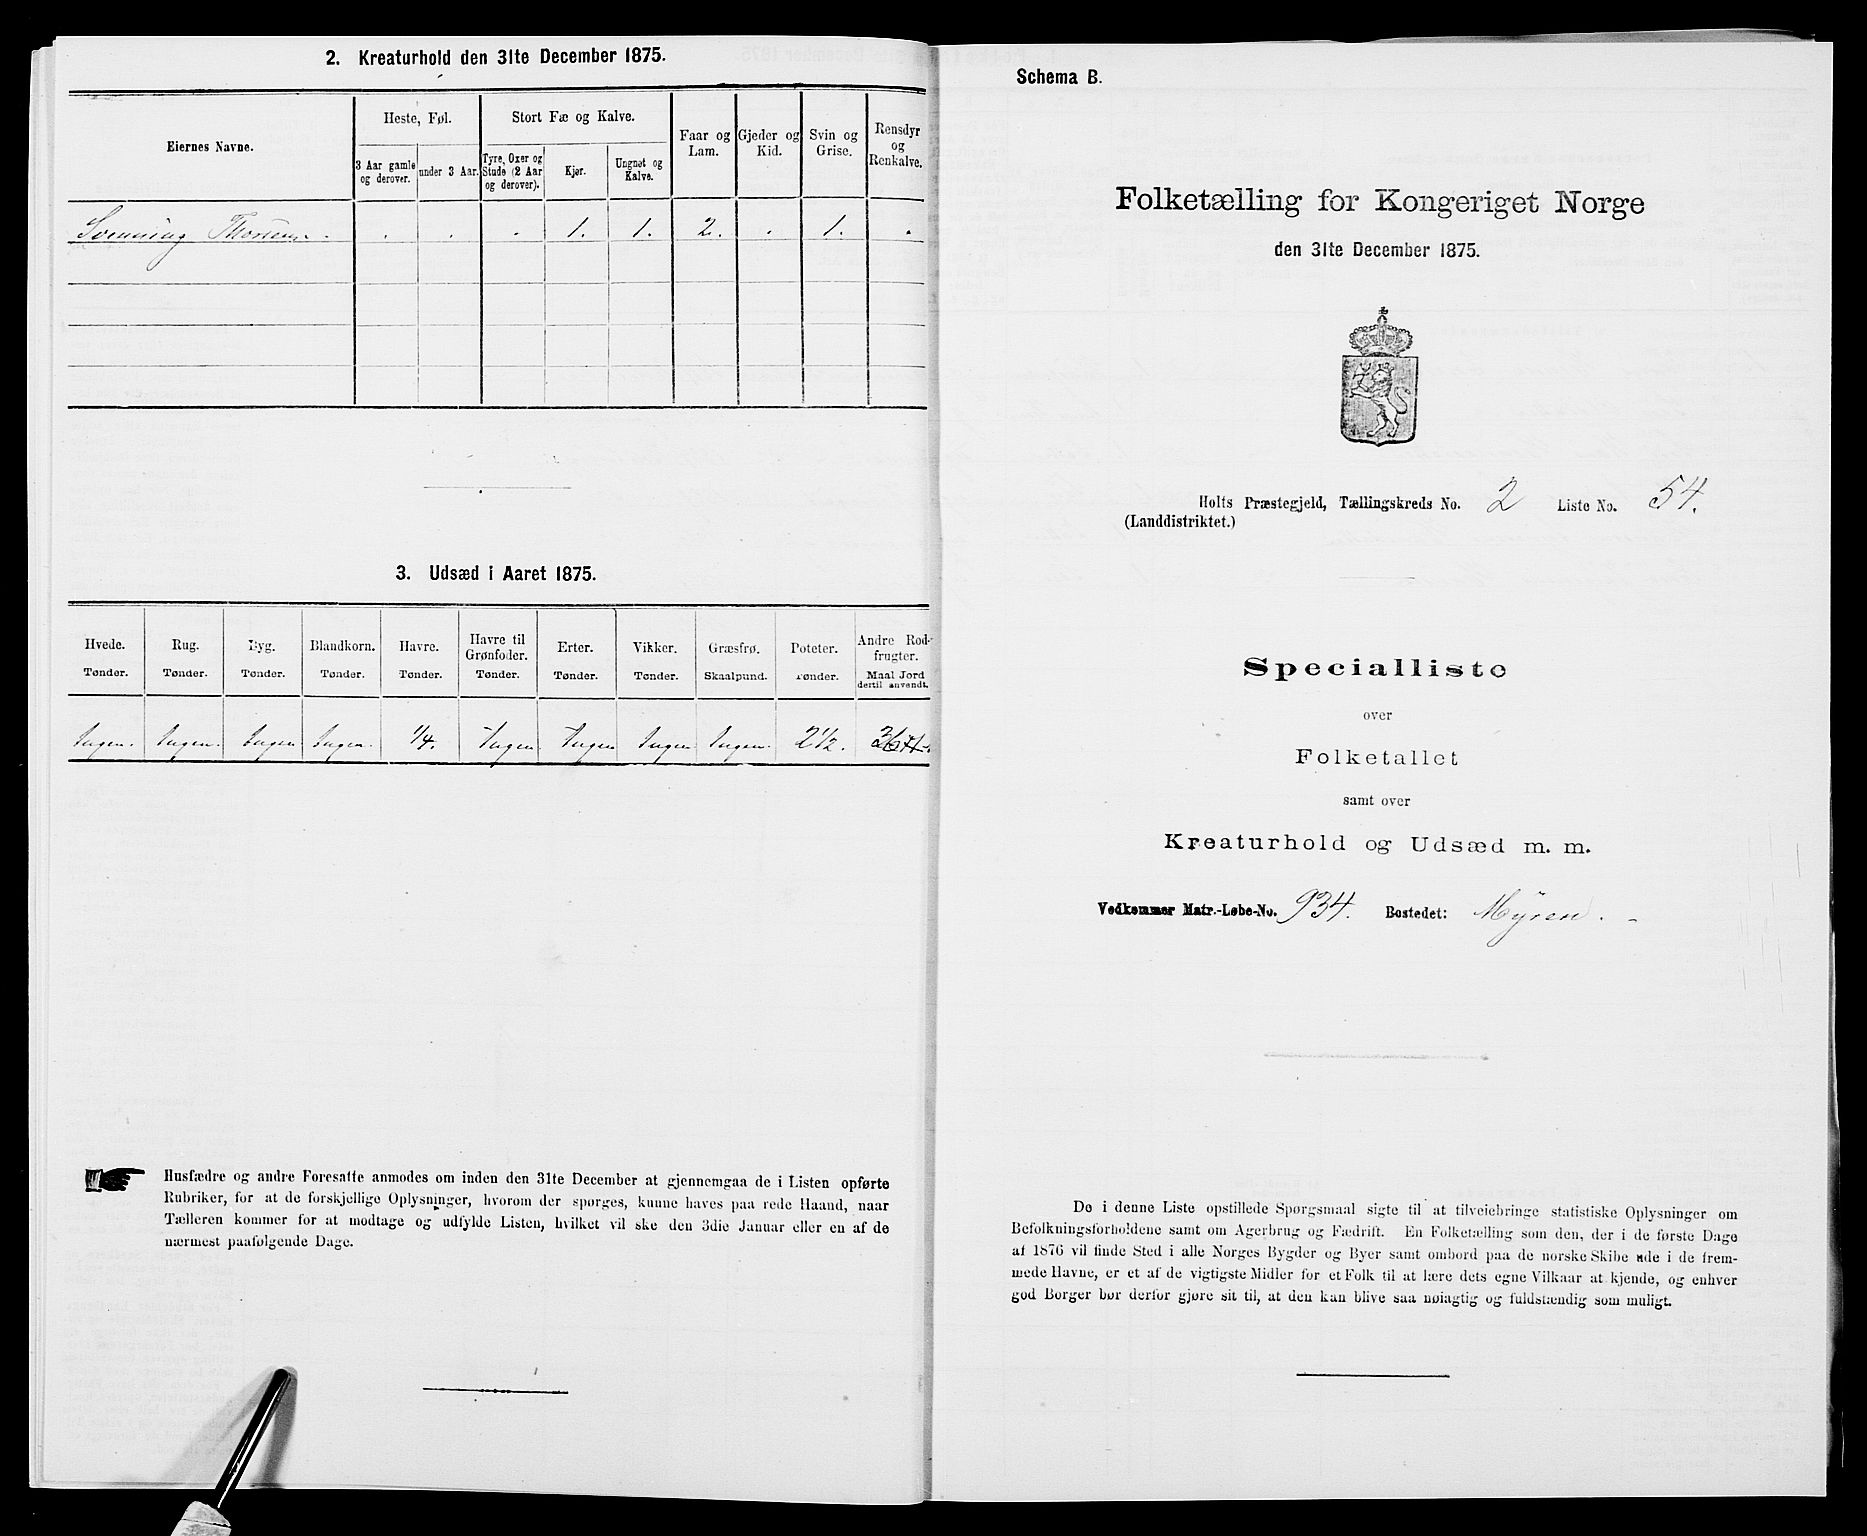 2. Kreaturhold den 31te December 1875.
Eiernes Navne.
Heste, Føl.
Stort Fæ og Kalve.
Faar og Lam.
Gjeder og Kid.
Svin og Grise.
Rensdyr og Renkalve.
3 Aar gamle og derover.
under 3 Aar.
Tyre, Oxer og Stude (2 Aar og derover).
Kjør.
Ungnøt og Kalve.
Svenning . . . 1. 1. 2. . 1. .
3. Udsæd i Aaret 1875.
Hvede. Rug. Byg. Blandkorn. Havre. Havre til Grønfoder. Erter. Vikker. Græsfrø. Poteter. Andre Rodfrugter.
Tønder. Tønder. Tønder. Tønder. Tønder. Tønder. Tønder. Tønder. Skaalpund. Tønder. Maal Jord dertil anvendt.
Ingen. Ingen. Ingen Ingen. 1/4. Ingen Ingen Ingen Ingen. 2 1/2.
Husfædre og andre Foresatte anmodes om inden den 31te December at gjennemgaa de i Listen opførte
Rubriker, for at de forskjellige Oplysninger, hvorom der spørges, kunne haves paa rede Haand, naar
Tælleren kommer for at modtage og udfylde Listen, hvilket vil ske den 3die Januar eller en af de
nærmest paafølgende Dage.
Schema B.
Folketælling for Kongeriget Norge
den 31te December 1875.
Holts Præstegjeld, Tællingskreds No. 2 Liste No. 54.
(Landdistriktet.)
Specialliste
over
Folketallet
samt over
Kreaturhold og Udsæd m. m.
Vedkommer Matr.-Løbe-No. 934. Bostedet: Mÿren.
De i denne Liste opstillede Spørgsmaal sigte til at tilveiebringe statistiske Oplysninger om
Befolkningsforholdene samt om Agerbrug og Fædrift. En Folketælling som den, der i de første Dage
af 1876 vil finde Sted i alle Norges Bygder og Byer samt ombord paa de norske Skibe ude i de frem-
mede Havne, er et af de vigtigste Midler for et Folk til at lære dets egne Vilkaar at kjende, og enhver
god Borger bør derfor gjøre sit til, at den kan blive saa nøiagtig og fuldstændig som muligt.